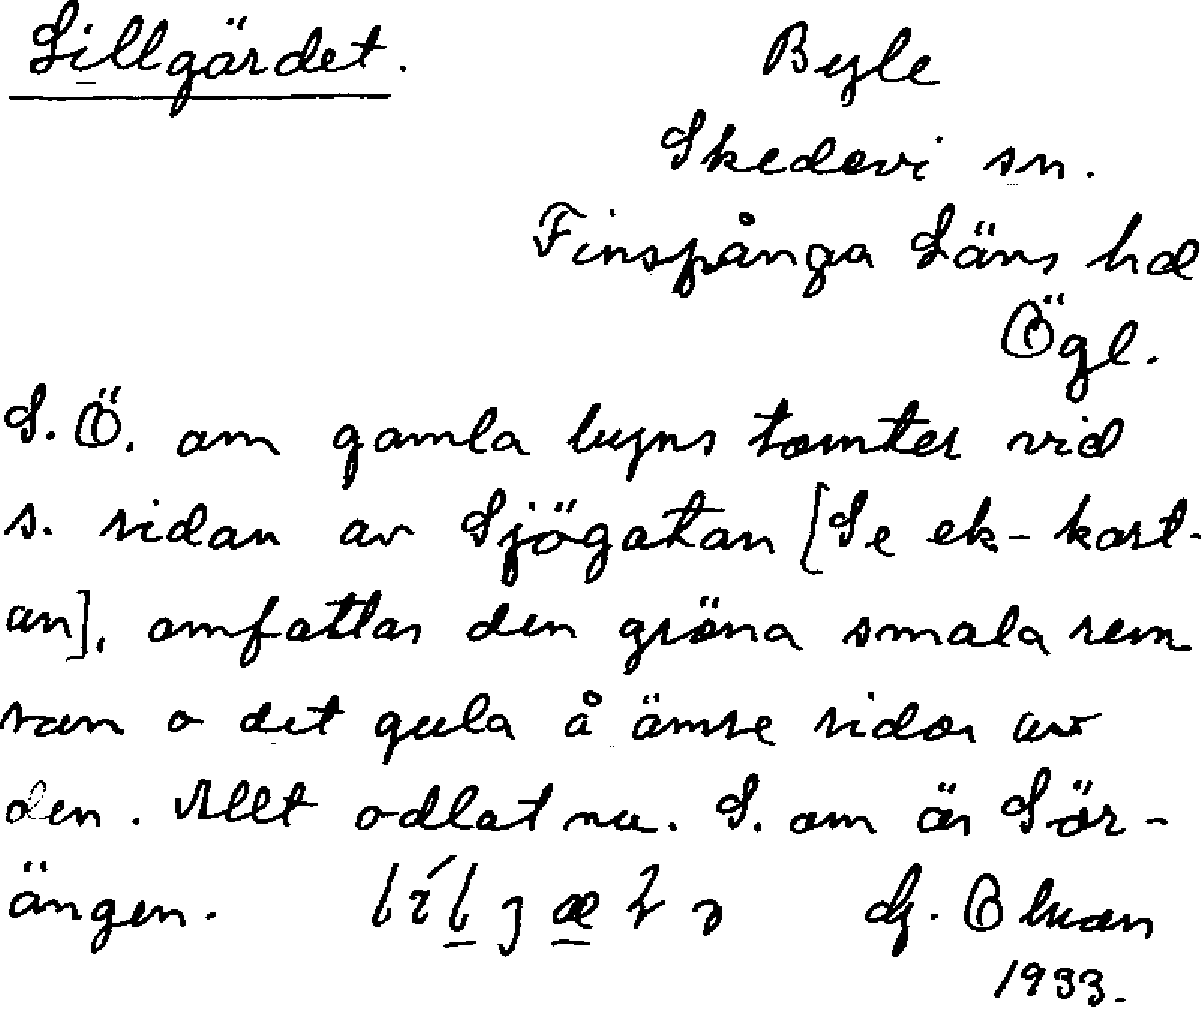 Lillgärdet. Byle
Skedevi sn.
Finspånga Läns hd
Ögl.
S.Ö. om gamla byns tomter vid
s. sidan av Sjögatan [Se ek-kart-
an], omfattar den gröna smala rem
san o det gula å ömse sidor av
den. Allt odlat nu. S. om är Sör-
ängen.
1933.